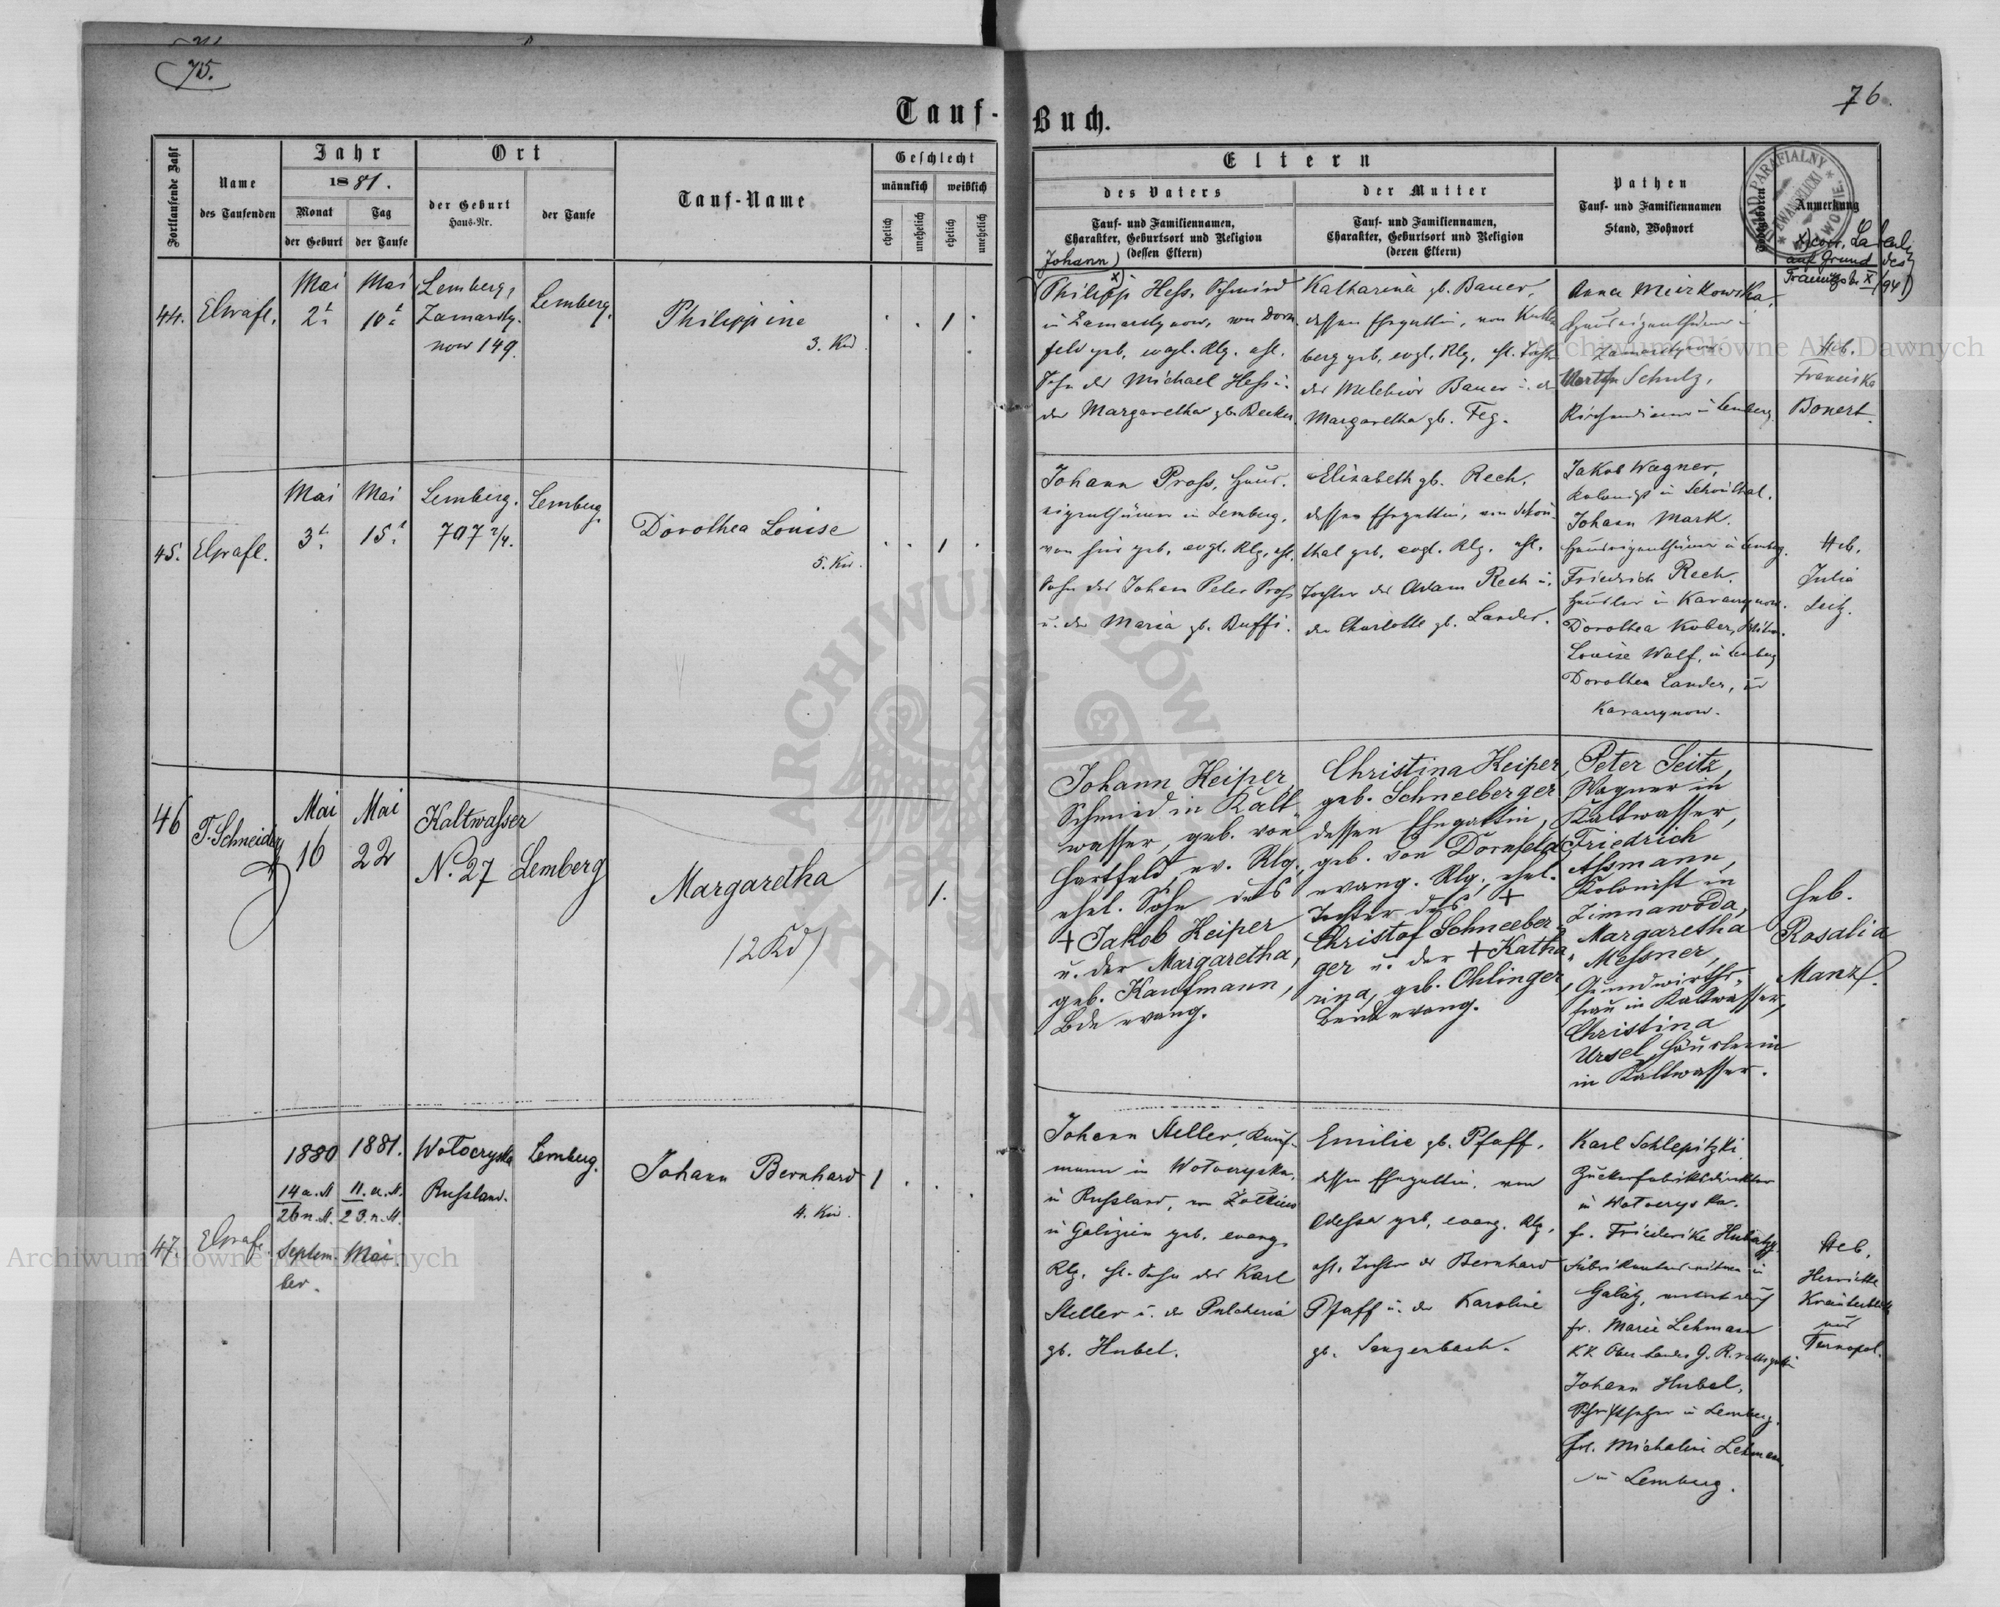 75.
76.
Tauf-Buch.
Fortlaufende Zahl
Name
des Taufenden
Jahr
1881.
Monat
Tag
der Geburt
der Taufe
Ort
der Geburt
Haus-Nr.
der Taufe
Tauf-Name
Geschlecht
männlich
weiblich
ehelich
unehelich
ehelich
unehelich
Eltern
des Vaters
Tauf- und Familiennamen,
Charakter, Geburtsort und Religion
(dessen Eltern)
der Mutter
Tauf- und Familiennamen,
Charakter, Geburtsort und Religion
(deren Eltern)
Pathen
Tauf- und Familiennamen
Stand, Wohnort
Anmerkung
auf Grund des
44.
Mai
2t.
Mai
10t.
Lemberg,
Zamarsty-
now 149.
Lemberg.
Philippine
3. Kd.
1
Johann)
Philipp Hess, Schmied
in Zamarstynow, von Dorn-
feld geb. evgl. Rlg. ehl.
Sohn des Michael Hess u.
der Margaretha gb. Becker.
Katharina gb. Bauer,
dessen Ehegattin, von
berg geb. evgl. Rlg. ehl. Tocht.
der Melchior Bauer u. der
Margaretha gb. Feg.
Anna Mierkowska,
Hauseigenthümerin
Zamarstynow.
Schulz,
Kirchendiener in Lemberg
Heb.
Franciska
Bonert.
45.
Mai
3t.
Mai
15t.
Lemberg.
707 2/4.
Lemberg.
Dorothea Louise
5. Kd.
1
Johann Pross, Haus-
eigenthümer in Lemberg,
von hier geb. evgl. Rlg. ehl.
Sohn des Johann Peter Pross
u. der Maria gb. Buffi.
Elisabeth gb. Rech,
dessen Ehegattin, von Schön-
thal geb. evgl. Rlg. ehl.
Tochter des Adam Rech u.
der Charlotte gb. Lander.
Jakob Wagner,
Kolonist in Schönthal.
Johann Mark.
Hauseigenthümer in Lemberg.
Friedrich Rech.
Häusler in
Dorothea Kober,
Louise Wolf, in Lemberg
Dorothea Lander, in
Heb.
Julia
Seitz.
46
T. Schneider
Mai
16
Mai
22
Kaltwasser
N. 27
Lemberg
Margaretha
(2 Kd)
1.
Johann Keiper,
Schmied in Kalt-
wasser, geb. von
Hartfeld, ev. Rlg.
ehel. Sohn des
+ Jakob Keiper
u. der Margaretha,
geb. Kaufmann,
Bde evang.
Christina Keiper,
geb. Schneeberger
dessen Ehegattin,
geb. von Dornfeld
evang. Rlg., ehel.
Tochter des +
Christof Schneeber-
ger u. der + Katha-
rina, geb. Ohlinger,
Beide evang.
Peter Seitz,
Wagner in
Kaltwasser,
Friedrich
Assmann,
Kolonist in
Zimnawoda,
Margaretha
Messner,
Grundwirths-
frau in Kaltwasser,
Christina
Ursel, Häuslerin
in Kaltwasser.
Heb.
Rosalia
Manz.
47.
1880
14 a. St.
26 n. St.
Septem-
ber.
1881.
11. a. St.
23. n. St.
Mai.
Wołoczyska
Russland.
Lemberg.
Johann Bernhard
4. Kd.
1
Johann Steller, Kauf-
mann in Wołoczyska,
in Russland, von Żołkiew
in Galizien geb. evang.
Rlg. ehl. Sohn des Karl
Steller u. der Pulcheria
gb. Hubel.
Emilie gb. Pfaff,
dessen Ehegattin, von
Odessa geb. evang. Rlg.
ehl. Tochter des Bernhard
Pfaff u. der Karoline
gb. Sangenbach.
Karl Schlepitzki,
Zuckerfabriksdirektor
in Wołoczyska.
fr. Friederike
in
Galatz, vertret. durch
fr. Marie Lehmann
Johann Hubel,
Schriftsetzer in Lemberg.
Frl. Michaline Lehmann,
in Lemberg.
Heb.
Henriette
aus
Tarnopol.
Archiwum Główne Akt Dawnych
Archiwum Główne Akt Dawnych